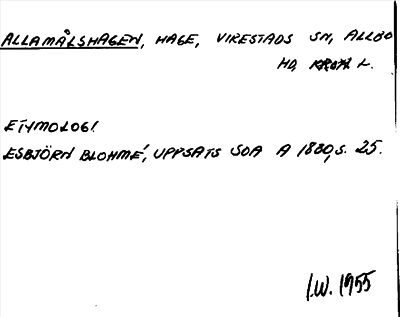 ALLAMÅLSHAGEN, HAGE, VIRESTADS SN, ALLBO
HD, KRON. L.
ETYMOLOGI.
ESBJÖRN BLOHMÉ, UPPSATS SOA A 1880, S. 25.
I.W. 1955